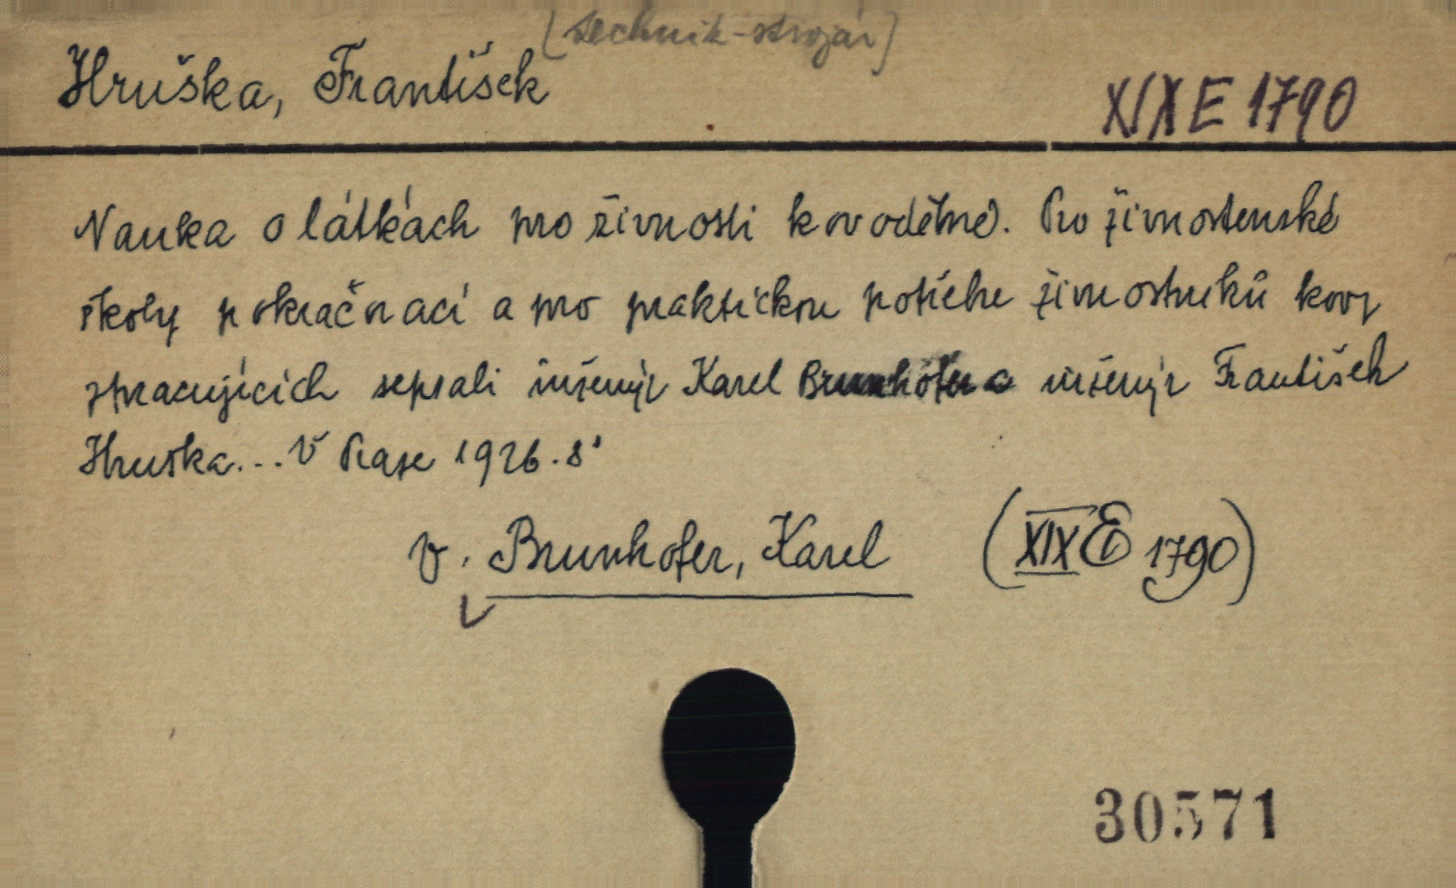 [technik-strojár]
Hruška, František
XIX E 1790
Nauka o látkách pro živnosti kovodělné. Pro živnostenské
školy pokračovací a pro praktickou potřebu živnostníků kovy
zpracujících sepsali inženýr Karel Brunhofer a inženýr František
Hruška... V Praze 1926. 8°
v. Brunhofer, Karel (XIX E 1790)
30571